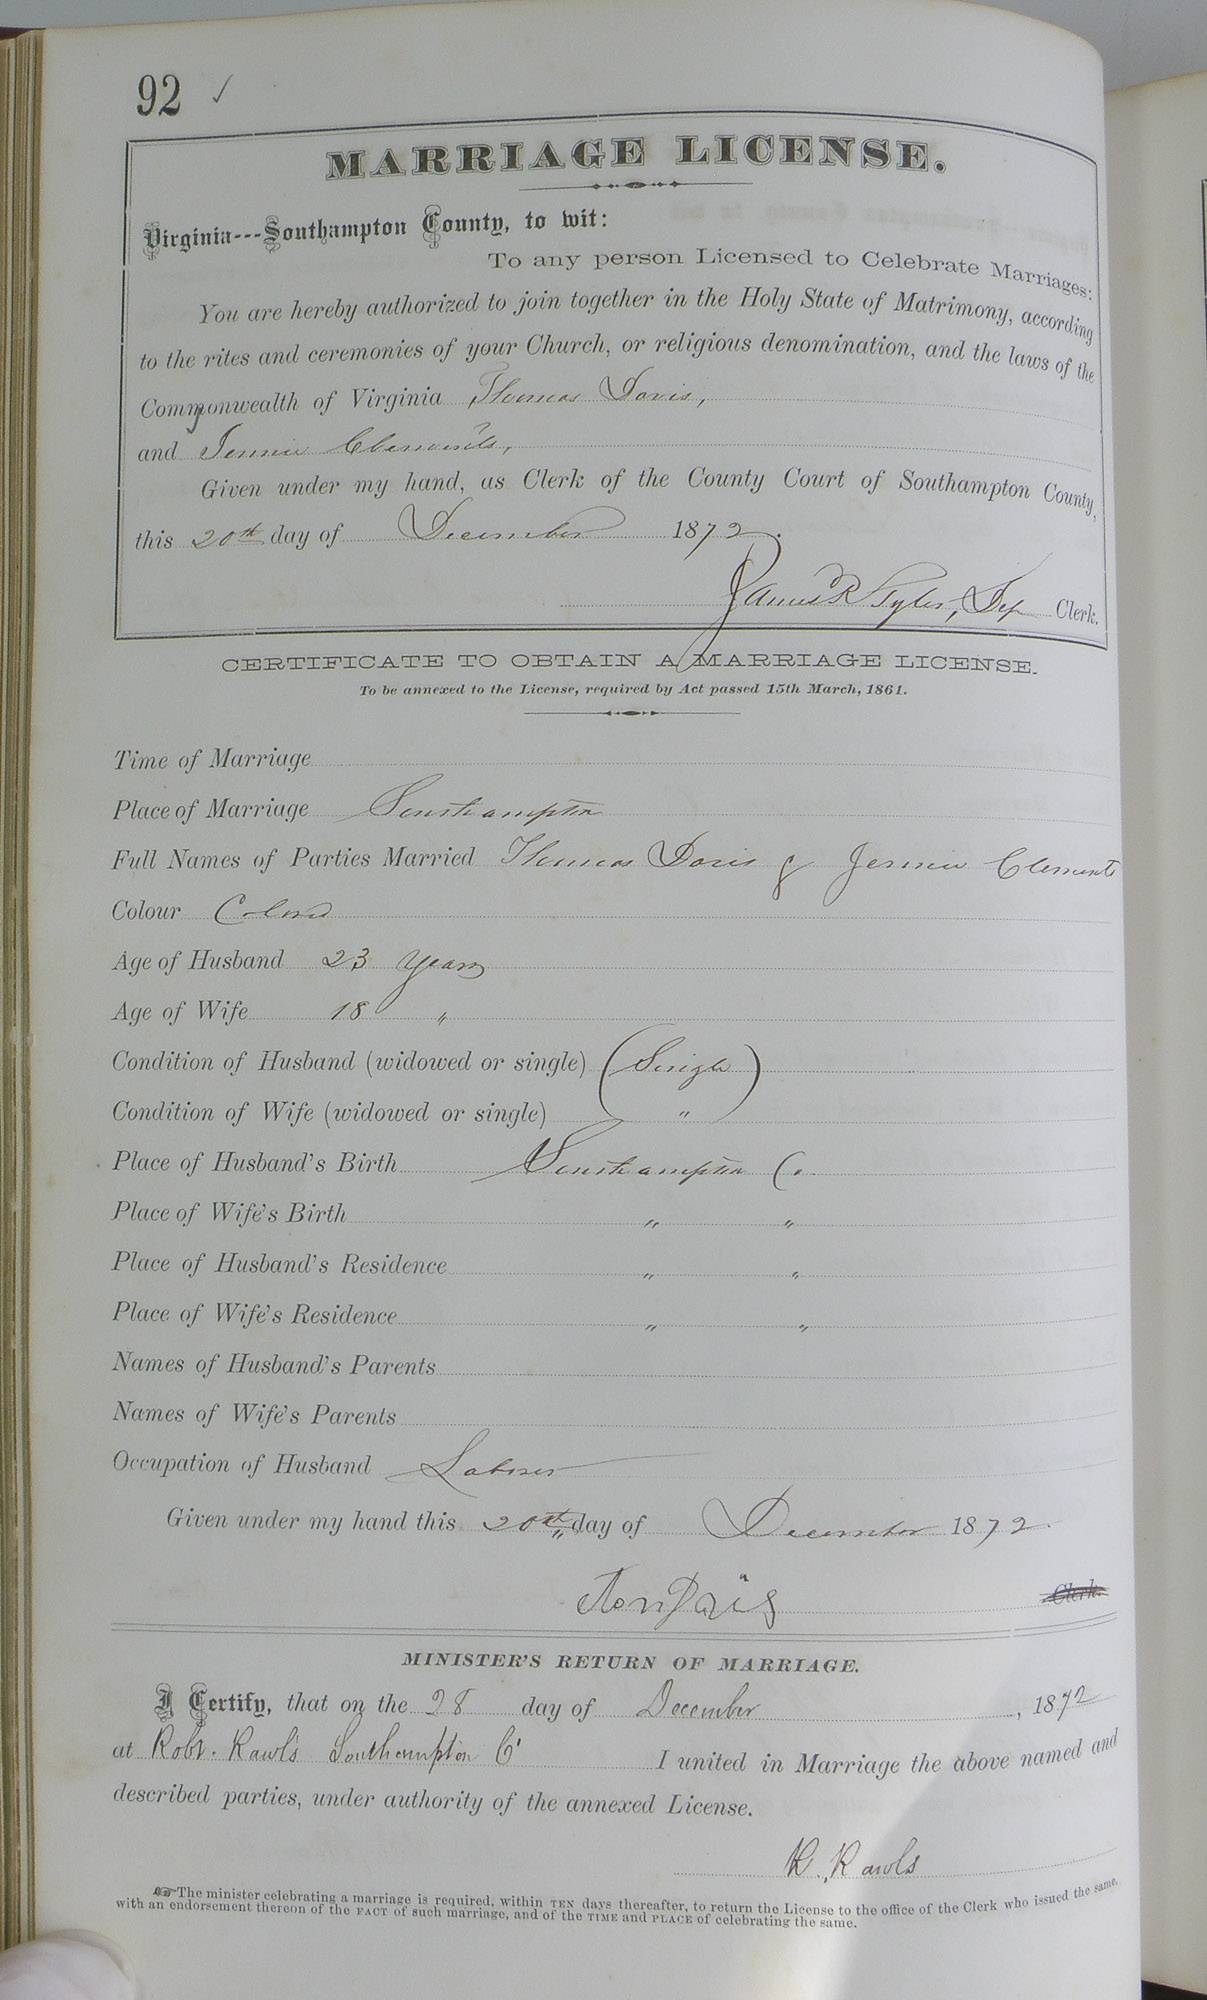 92 ✓
MARRIAGE LICENSE.
Virginia---Southampton County, to wit:
To any person Licensed to Celebrate Marriages:
You are hereby authorized to join together in the Holy State of Matrimony, according
to the rites and ceremonies of your Church, or religious denomination, and the laws of the
Commonwealth of Virginia Thomas Davis,
and Jennie Clements,
Given under my hand, as Clerk of the County Court of Southampton County,
this 20th day of December 1872.
James R Tyler, Dep Clerk.
CERTIFICATE TO OBTAIN A MARRIAGE LICENSE.
To be annexed to the License, required by Act passed 15th March, 1861.
Time of Marriage
Place of Marriage Southampton
Full Names of Parties Married Thomas Davis & Jennie Clements
Colour Colored
Age of Husband 23 years
Age of Wife 18 "
Condition of Husband (widowed or single) (Single)
Condition of Wife (widowed or single) "
Place of Husband's Birth Southampton Co.
Place of Wife's Birth " "
Place of Husband's Residence " "
Place of Wife's Residence " "
Names of Husband's Parents
Names of Wife's Parents
Occupation of Husband Laborer
Given under my hand this 20th day of December 1872.
Clerk.
MINISTER'S RETURN OF MARRIAGE.
I Certify, that on the 28 day of December, 1872
at Robt. Rawls Southampton Co I united in Marriage the above named and
described parties, under authority of the annexed License.
R. Rawls
☞The minister celebrating a marriage is required, within TEN days thereafter, to return the License to the office of the Clerk who issued the same,
with an endorsement thereon of the FACT of such marriage, and of the TIME and PLACE of celebrating the same.